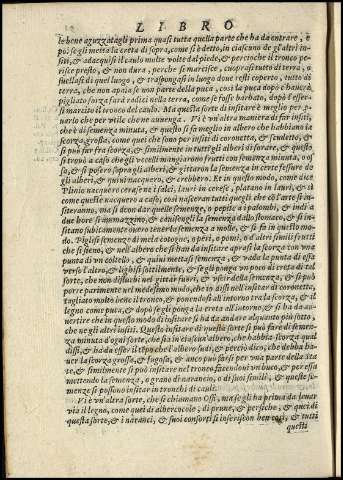 LIBRO
se bene aguzzatagli prima quasi tutta quella parte che ha da entrare, e
poi segli metta la creta di sopra, come si è detto, in ciascuno de gl'altri insi-
ti, & adacquisi il caulo molte volte dal piede, & percioche il tronco pe-
risce presto, & non dura, perche si marcisce, cuoprasi tutto di terra, o
uuellasi di quel luogo, & traspongasi in luogo doue resti coperto, tutto di
terra, che non apaia se non parte della puca, così la puca dopo c'haurà
pigliato forza farà radici nella terra, come se fosse barbato, dopò l'esser-
si marcito il tronco del caulo. Ma questa sorte di insitare è meglio per p-
uarlo che per vtile che ne auuenga. Vi è vn'altra maniera di far insiti,
che è di semenza minuta, & questo si fa meglio in albero che habbiano la
scorza grossa, come quei che sono per insitar di coronetta, & scudetto, &
si può far fra scorza, & similmente in tutti gli alberi di forare, & questo
si trouò a caso che gli vccelli mangiarono frutti con semenza minuta, o os-
so, & si posero sopra gli alberi, & gittarono la semenza in certe fessure de
gli alberi, & quiui nacquero, & crebbero. Et in questo modo, come dice
Plinio nacquero cerase ne i salci, lauri in cerese, platano in lauri, & sì
come quelle nacquero a caso, così nasceranno tutti quegli che cō l'arte si in-
siteranno, ma si deon dar quelle semenze, o pepite a i palombi, & indi a
due hore si ammazzino, & cauisengli la semenza dallo stomaco, & si in-
sitano subitamente ouero tener la semenza a molle, & si fa in questo mo-
do. Piglisi semenza di mela cotogne, o peri, o pomi, o d'altri simili frutti
che si siemi, & nell'albero che si ha da insitare aprasi la scorza con vna
punta di vn coltello, & quiui mettasi semenza, & vada la punta di essa
verso l'altro, & leghisi sottilmente, & segli ponga vn poco di creta di tal
sorte, che non disturbi nel gittar fuori, & vscir della semenza, & si può
porre parimente nel medesimo modo che io dissi nell'insitar di coronetta,
tagliato molto bene il tronco, & ponendosi all'intorno tra la scorza, & il
legno come puca, & dopò segli ponga la creta all'intorno, & si ha da au-
uertire che in questo modo di insitare si ha da andare alquanto piu sotto,
che ne gli altri insiti. Questo insitare di questa sorte si può fare di semen-
za minuta d'ogni sorte, che sia in ciascun'albero, che habbi scorza qual
dissi, & ha da esser il troncho d'albero sudo, & perciò dico, che debba ha-
uer la scorza grossa, & sugosa, & anco può farsi per vna parte della ita-
te, & similmente si può insitare nel tronco facendoui vn buco, & per essa
mettendo la semenza, o grano di narancio, o di suoi simili, & queste si-
menze si possono insitar in tronchi di caule.
Vi è vn'altra sorte, che si chiamano Ossi, ma segli ha prima da leuar
via il legno, come quei di albercocolo, di prune, & persiche, & quei di
questa sorte, & i naranci, & suoi consorti si inseriscon ben così, & tutti
questi